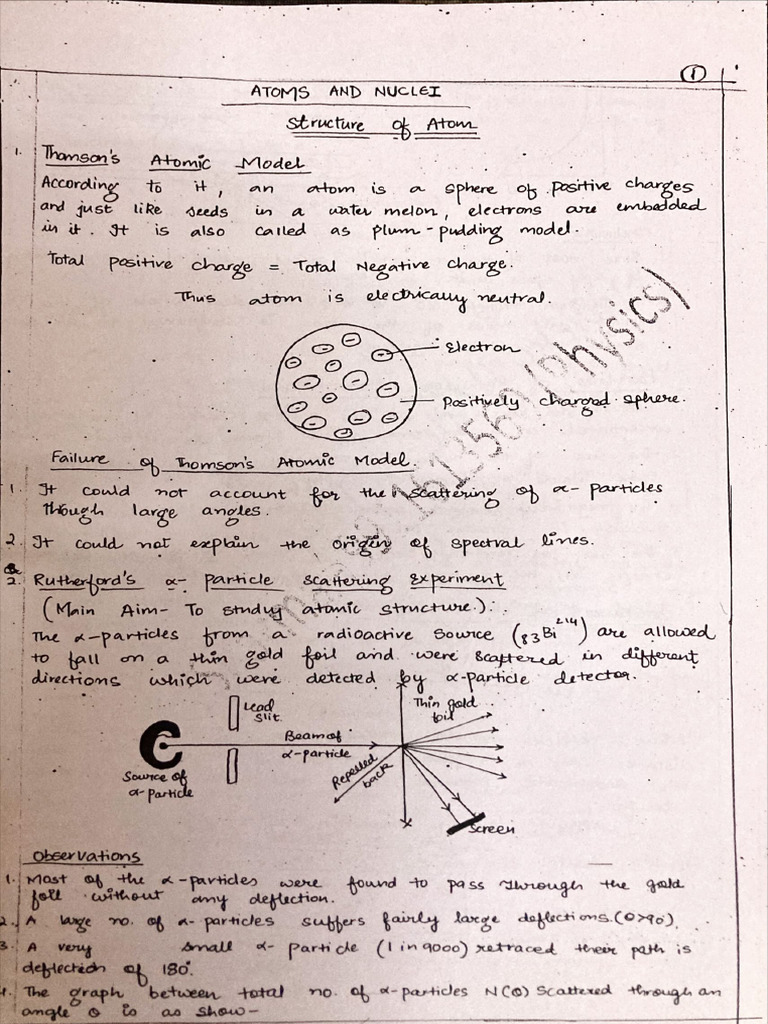 ①
ATOMS AND NUCLEI
Structure of Atom
1. Thomson's Atomic Model
According to it, an atom is a sphere of positive charges
and just like seeds in a water melon, electrons are embedded
in it. It is also called as plum-pudding model.
Total positive charge = Total Negative charge.
Thus atom is electrically neutral.
Electron
Positively charged sphere.
Failure of Thomson's Atomic Model.
1. It could not account for the scattering of α- particles
though large angles.
2. It could not explain the origin of spectral lines.
2. Rutherford's α- particle scattering Experiment
(Main Aim- To study atomic structure.):
The α-particles from a radioactive source (₈₃Bi²¹⁴) are allowed
to fall on a thin gold foil and were scattered in different
directions which were detected by α-particle detector.
Lead
Slit
Thin gold
foil
Beam of
α-particle
Repelled
back
Source of
α-particle
Screen
Observations
1. Most of the α-particles were found to pass through the gold
foil without any deflection.
2. A large no. of α- particles suffers fairly large deflections. (θ>90°)
3. A very small α- particle (1 in 9000) retraced their path is
deflection of 180°.
4. The graph between total no. of α-particles N(θ) scattered through an
angle θ is as show-
(Physics)